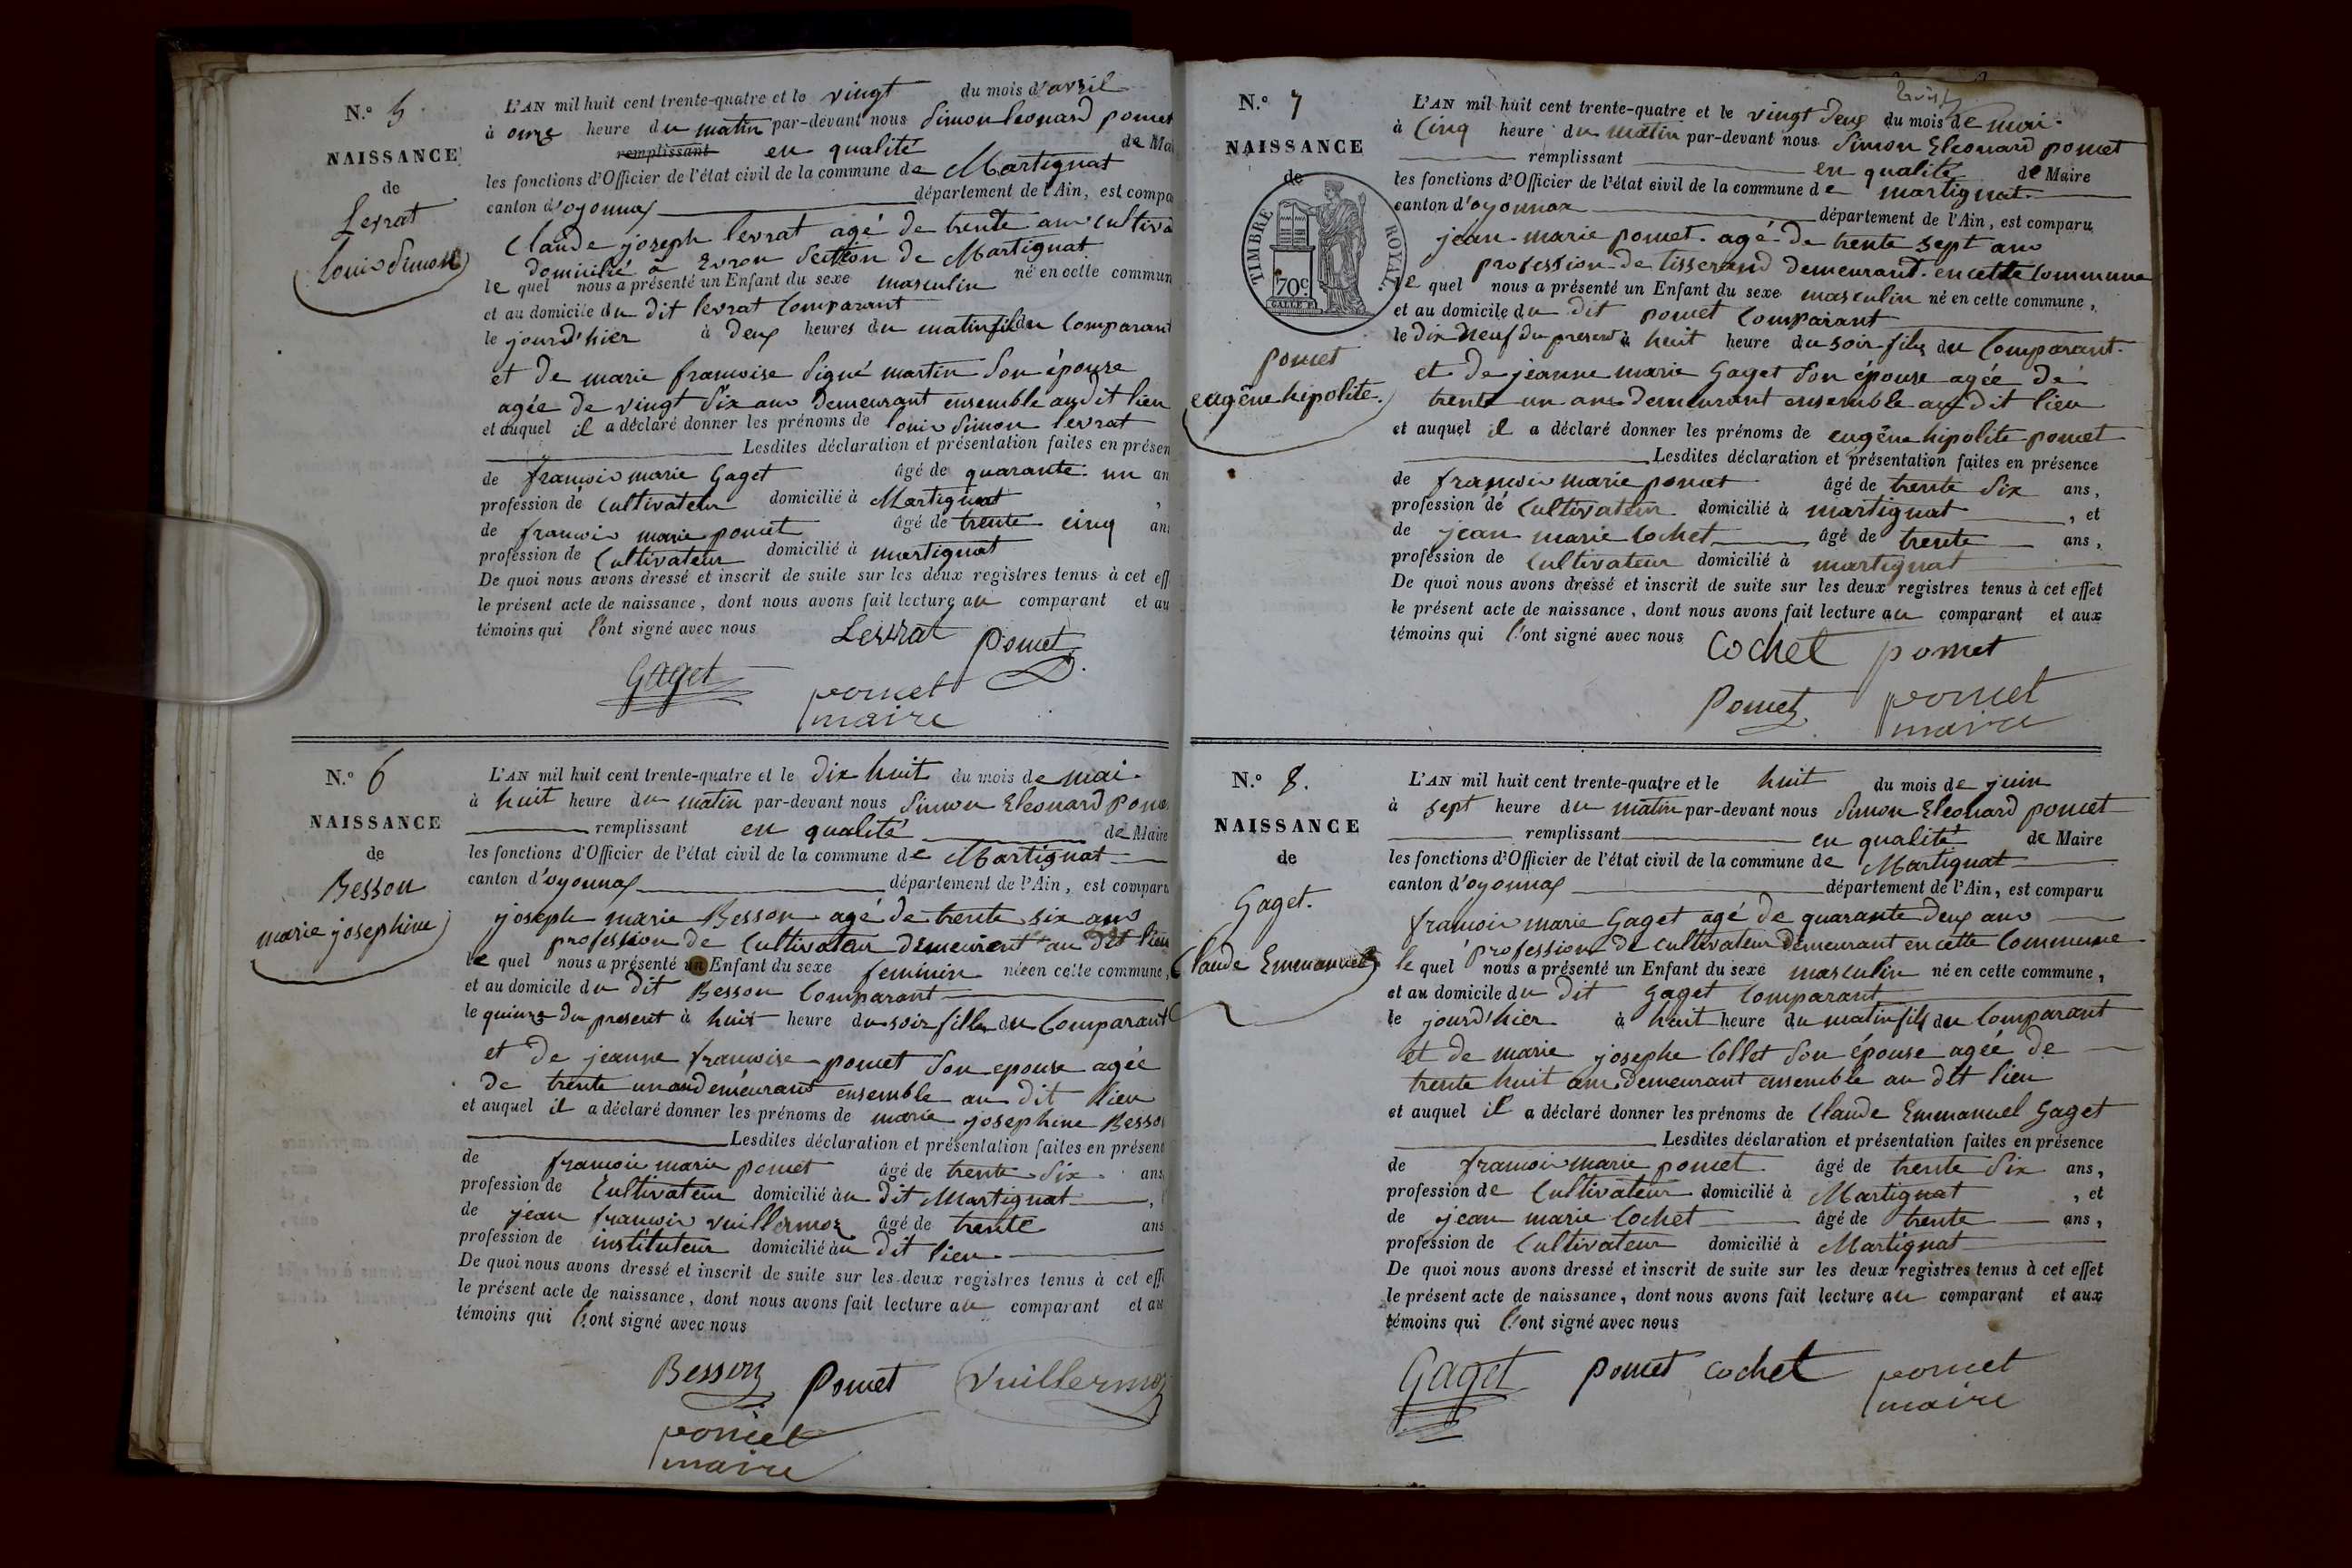 N.° 5.
NAISSANCE
de
Levrat
Louis Simon
L'AN mil huit cent trente-quatre et le vingt du mois d'avril
à onze heure du matin par-devant nous Simon Leonard pomet
remplissant en qualité de Mai
les fonctions d'Officier de l'état civil de la commune de Martignat
canton d'oyonnax département de l'Ain, est compa
Claude joseph levrat agé de trente ans cultiva
domicilié à Evron Section de Martignat
le quel nous a présenté un Enfant du sexe masculin né en cette commun
et au domicile du dit levrat Comparant
le jourd'hier à deux heures du matin fils du Comparant
et de marie francoise Signé martin Son épouse
agée de vingt Six ans demeurant ensemble au dit lieu
et auquel il a déclaré donner les prénoms de louis Simon levrat
Lesdites déclaration et présentation faites en présen
de francois marie Gaget âgé de quarante un an
profession de Cultivateur domicilié à Martignat ,
de francois marie pomet âgé de trente cinq ans
profession de Cultivateur domicilié à martignat
De quoi nous avons dressé et inscrit de suite sur les deux registres tenus à cet eff
le présent acte de naissance, dont nous avons fait lecture au comparant et au
témoins qui l'ont signé avec nous
Levrat Pomet
Gaget
pomet
maire
N.° 6
NAISSANCE
de
Besson
marie josephine
L'AN mil huit cent trente-quatre et le dix huit du mois de mai.
à huit heure du matin par-devant nous Simon Eleonard pome
remplissant en qualité de Maire
les fonctions d'Officier de l'état civil de la commune de Martignat
canton d'oyonnax département de l'Ain, est comparu
joseph marie Besson agé de trente six ans
profession de Cultivateur demeurent au dit lieu
le quel nous a présenté un Enfant du sexe feminin née en cette commune,
et au domicile du dit Besson Comparant
le quinze du present à huit heure du soir fille du Comparant
et de jeanne francoise pomet Son epouse agée
de trente un ans demeurant ensemble au dit lieu
et auquel il a déclaré donner les prénoms de marie josephine Besson
Lesdites déclaration et présentation faites en présenc
de francois marie pomet âgé de trente Six ans,
profession de Cultivateur domicilié au dit Martignat ,
de jean francois vuillermoz âgé de trente ans
profession de instituteur domicilié au dit lieu
De quoi nous avons dressé et inscrit de suite sur les deux registres tenus à cet effe
le présent acte de naissance, dont nous avons fait lecture au comparant et au
témoins qui l'ont signé avec nous
Besson Pomet Vuillermoz
pomet
maire
N.° 7
NAISSANCE
de
TIMBRE ROYAL.
70c.
pomet
eugêne hipolite.
L'AN mil huit cent trente-quatre et le vingt deux du mois de mai.
à Cinq heure du matin par-devant nous Simon Eleonard pomet
remplissant en qualité de Maire
les fonctions d'Officier de l'état civil de la commune de martignat
canton d'oyonnax département de l'Ain, est comparu
jean-marie pomet. agé de trente sept ans
profession de tisserand demeurant en cette Commune
le quel nous a présenté un Enfant du sexe masculin né en cette commune,
et au domicile du dit pomet Comparant
le dix neuf du present à huit heure du soir fils du Comparant.
et de jeanne marie Gaget Son épouse agée de
trente un ans demeurant ensemble au dit lieu
et auquel il a déclaré donner les prénoms de eugêne hipolite pomet
Lesdites déclaration et présentation faites en présence
de francois marie pomet âgé de trente Six ans,
profession de Cultivateur domicilié à martignat , et
de jean marie Cochet âgé de trente ans,
profession de Cultivateur domicilié à martignat
De quoi nous avons dressé et inscrit de suite sur les deux registres tenus à cet effet
le présent acte de naissance, dont nous avons fait lecture au comparant et aux
témoins qui l'ont signé avec nous
Cochet pomet
Pomet pomet
maire
N.° 8.
NAISSANCE
de
Gaget.
Claude Emmanuel
L'AN mil huit cent trente-quatre et le huit du mois de juin
à sept heure du matin par-devant nous Simon Eleonard pomet
remplissant en qualité de Maire
les fonctions d'Officier de l'état civil de la commune de Martignat
canton d'oyonnax département de l'Ain, est comparu
francois marie Gaget agé de quarante deux ans
profession de cultivateur demeurant en cette Commune
le quel nous a présenté un Enfant du sexe masculin né en cette commune,
et au domicile du dit Gaget Comparant
le jourd'hier à huit heure du matin fils du Comparant
et de marie josephe Collet Son épouse agée de
trente huit ans demeurant ensemble au dit lieu
et auquel il a déclaré donner les prénoms de Claude Emmanuel Gaget
Lesdites déclaration et présentation faites en présence
de francois marie pomet âgé de trente Six ans,
profession de Cultivateur domicilié à Martignat , et
de jean marie Cochet âgé de trente ans,
profession de Cultivateur domicilié à Martignat
De quoi nous avons dressé et inscrit de suite sur les deux registres tenus à cet effet
le présent acte de naissance, dont nous avons fait lecture au comparant et aux
témoins qui l'ont signé avec nous
Gaget Pomet Cochet pomet
maire